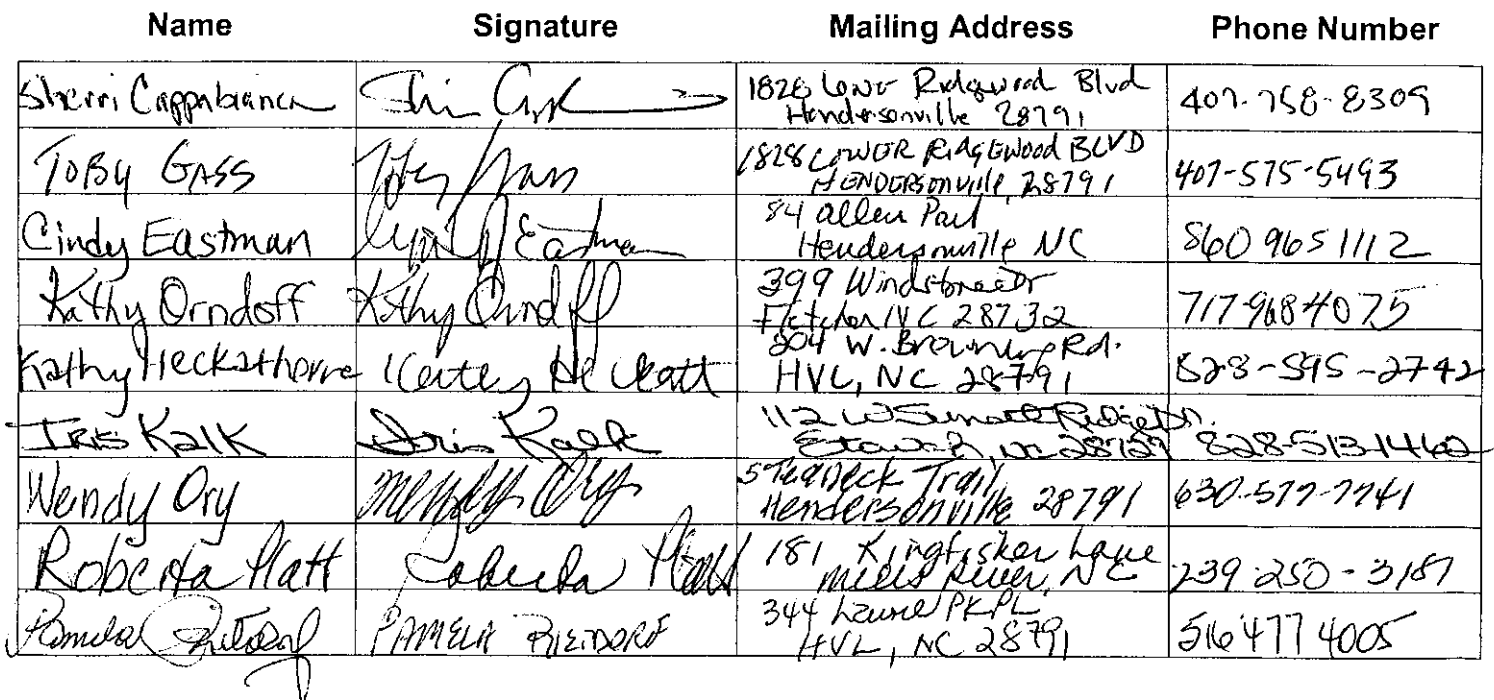 Name Signature Mailing Address Phone Number
Sherri Cappabianca 1828 Lower Ridgewood Blvd
Hendersonville 28791 407-758-8309
TOBY GASS Toby Gass 1828 LOWER RIDGEWOOD BLVD
HENDERSONVIlle, 28791 407-575-5493
Cindy Eastman Cynthia Eastman 84 allen Park
Hendersonville NC 860 965 1112
Kathy Orndoff Kathy Orndoff 399 Windstone Dr
Fletcher NC 28732 717 968 4075
Kathy Heckathorne 204 W. Browning Rd.
HVL, NC 28791 828-595-2742
IRIS KALK Iris Kalk 112 W Sunset Ridge Dr.
Etowah, NC 28729 828-513-1462
Wendy Ory Wendy Ory 5 Teaneck Trail
Hendersonville 28791 630-577-7741
Roberta Platt Roberta Platt 181 Kingfisher Lane
Mills River, NC 239-250-3187
Pamela PAMELA RIETDORF 344 Laurel PK PL
HVL, NC 28791 516 477 4005